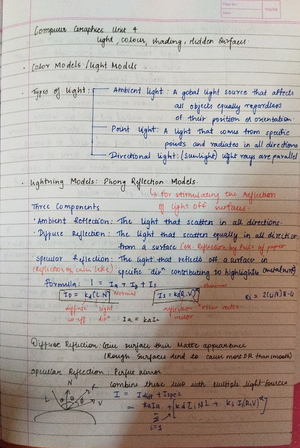 Computer Graphics Unit 4
light, colour, shading, Hidden Surfaces
Color Models / Light Models
Types of light:
Ambient light: A gobal light source that affects
all objects equally regardless
of their position or orientation
Point light: A light that comes from specific
points and radiates in all directions
Directional light: (Sunlight) light rays are parallel
Lightning Models: Phong Reflection Models
for stimulating the reflection
of light off surfaces
Three Components
Ambient Reflection: The light that scatters in all directions
Diffuse Reflection: The light that scatters equally in all direction
from a surface
Specular Reflection: The light that reflects off a surface in
specific dirn contributing to highlights
Formula: I = Ia + Id + Is
ID = kd(L.N)
Is = ks(R.V)n
diffuse light
co-eff dir
Ia = kaIa
reflection
vector
Diffuse Reflection: Give surface their Matte appearance
(Rough surfaces tend to cause more DR than smooth)
Specular Reflection: Perfect mirror
combine these two with multiple light sources
I = Idiff + Ispec
i=1